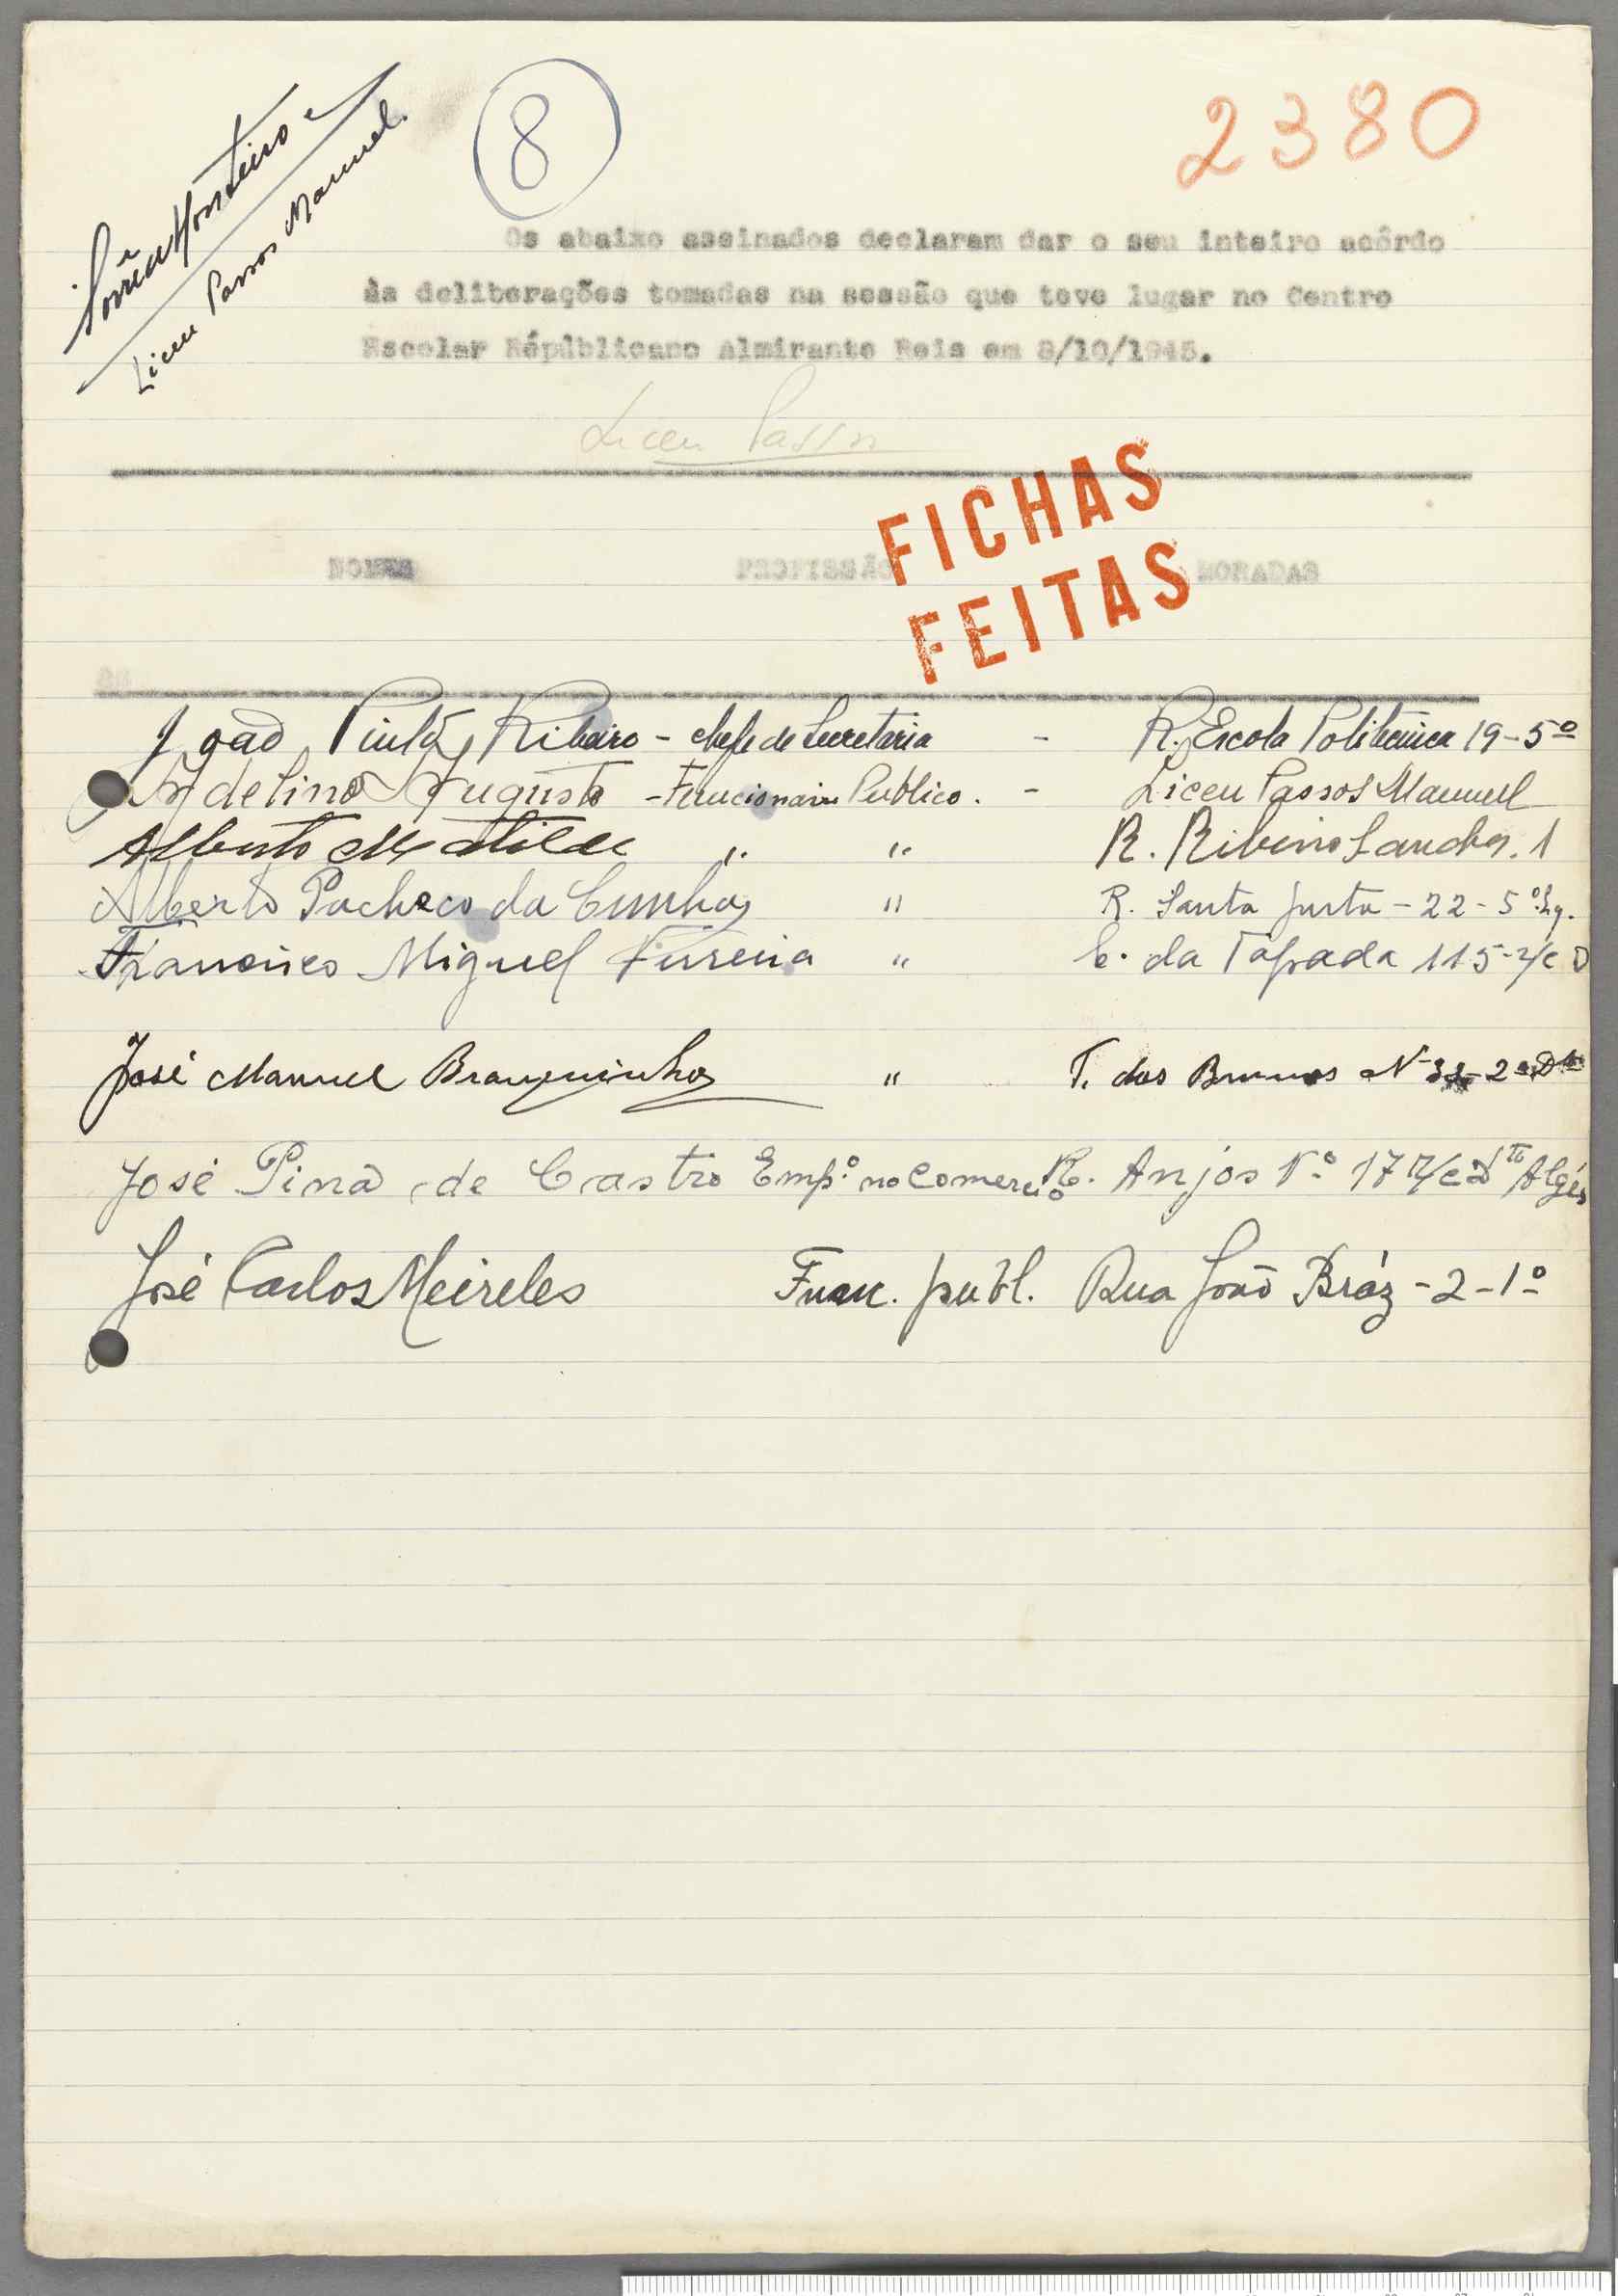 Monteiro
Liceu Passos Manuel.
8
2380
Os abaixo assinados declaram dar o seu inteiro acôrdo
às deliberações tomadas na sessão que teve lugar no Centro
Escolar Républicano Almirante Reis em 8/10/1945.
Liceu Passos
FICHAS
FEITAS
NOMES PROFISSÃO MORADAS
João Pinto Ribeiro - chefe de Secretaria - R. Escola Politécnica 19-5º
Adelino Augusto - Funcionario Publico. - Liceu Passos Manuel
Alberto Matilde " " R. Ribeiro Sanches. 1
Alberto Pacheco da Cunha " R. Santa Justa - 22 - 5º Eq.
Francisco Miguel " C. da Tapada 115-r/c D
José Manuel Branquinho " T. dos Brunos Nº 2º Dto
José Pina de Castro Empº no Comercio R. Anjos Nº 17 r/c Dto Algés
José Carlos Meireles Func. publ. Rua João Bráz - 2 - 1º